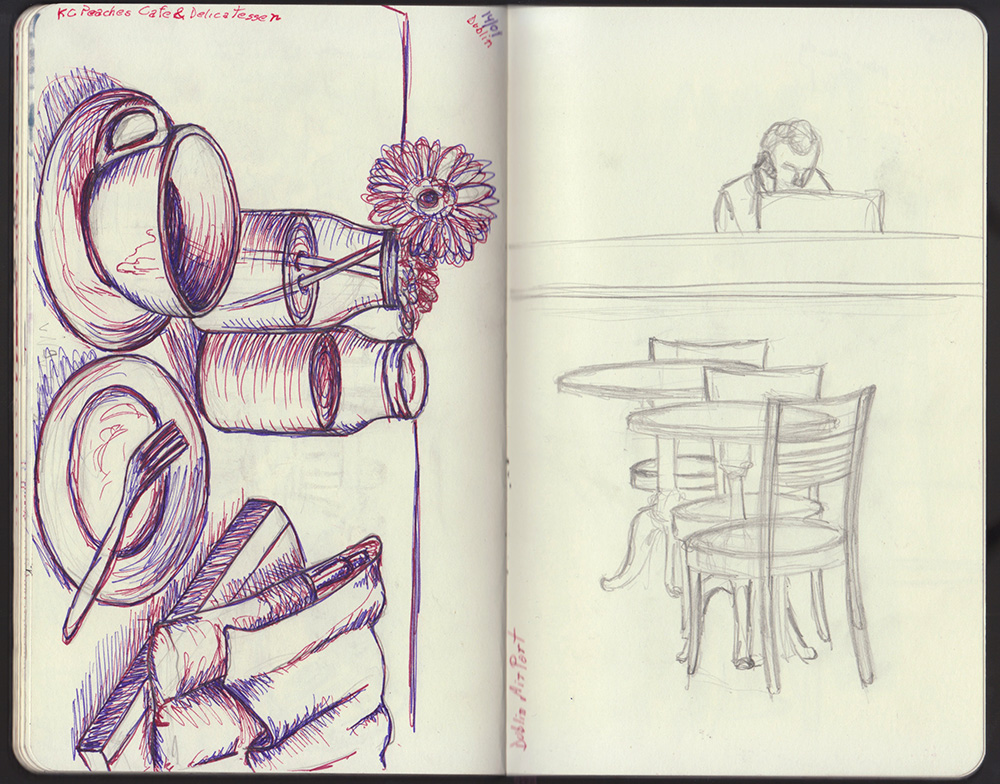 KC Peaches Cafe & Delicatessen
14/01
Dublin
Dublin AirPort